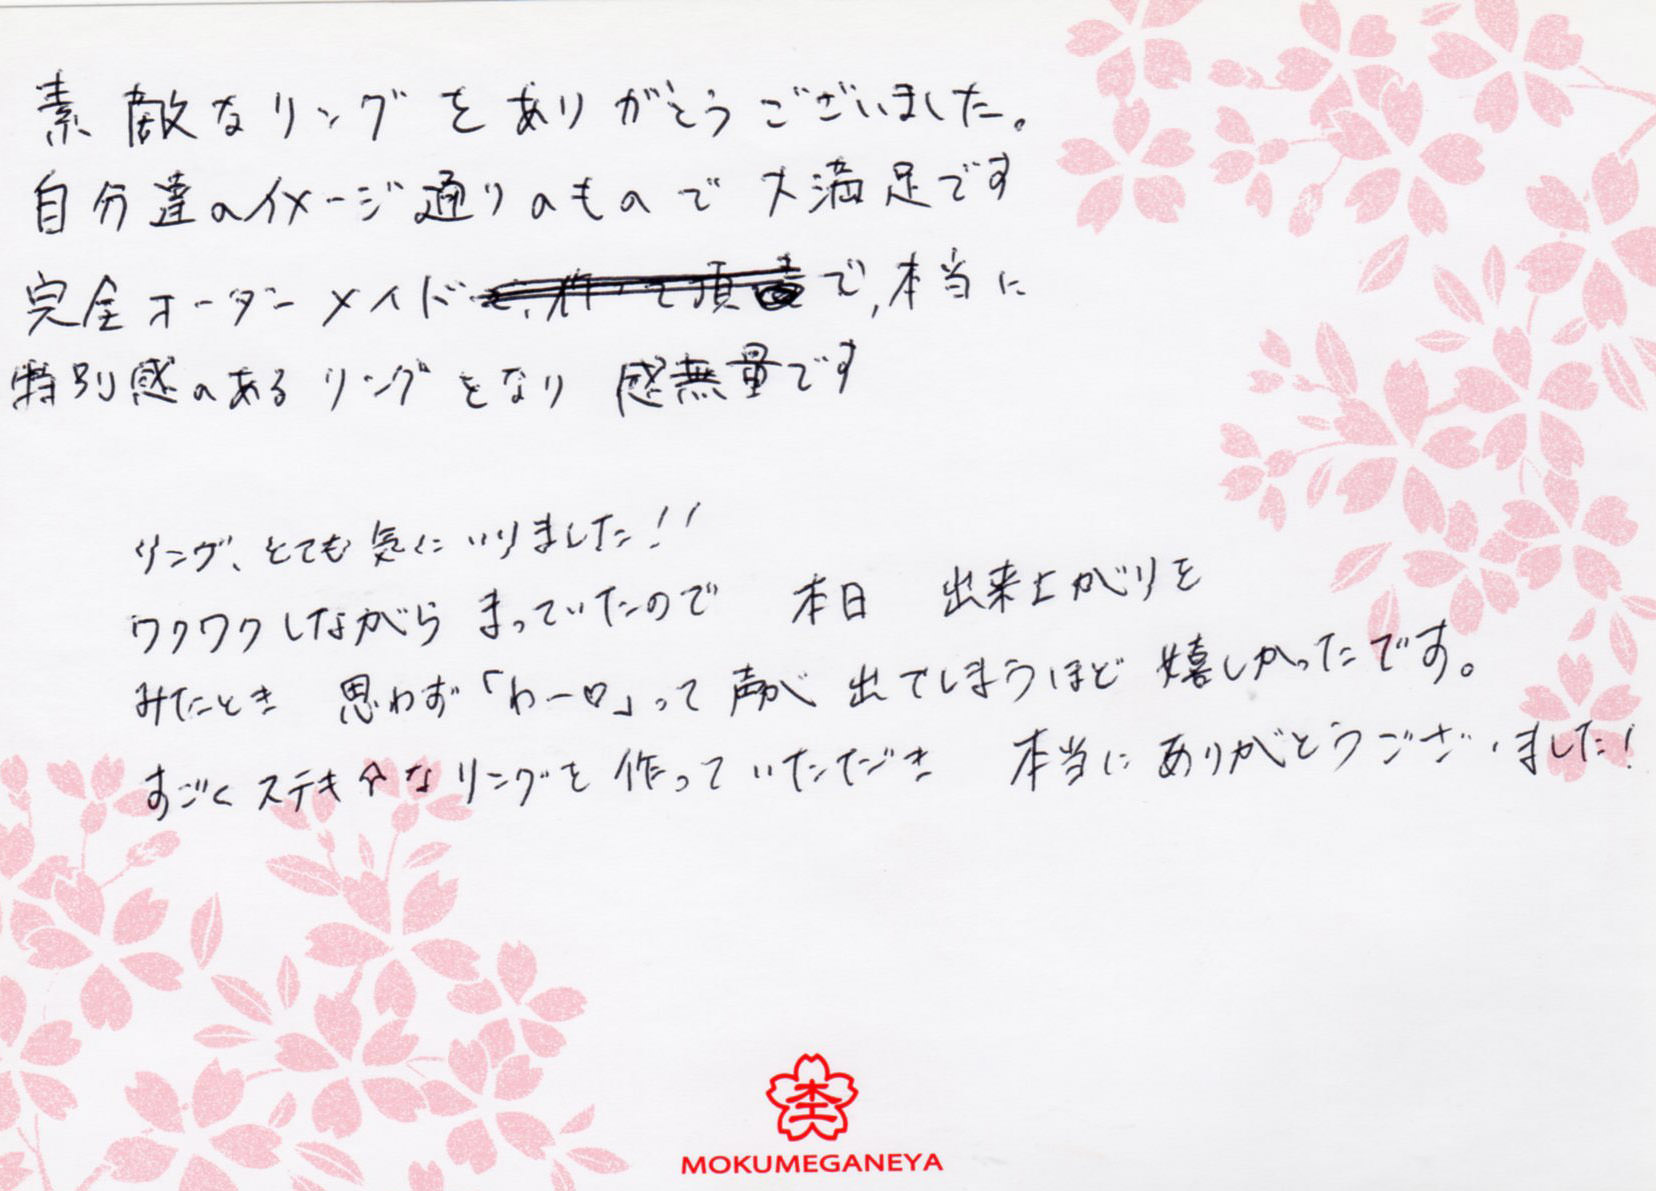 素敵なリングをありがとうございました。
自分達のイメージ通りのもので大満足です
完全オーダーメイドで、本当に
特別感のあるリングとなり 感無量です
リング、とても気にいりました!!
ワクワクしながら まっていたので 本日 出来上がりを
みたとき 思わず「わー♡」って声が 出てしまうほど 嬉しかったです。
すごくステキ☆なリングを作っていただき 本当にありがとうございました!
杢
MOKUMEGANEYA